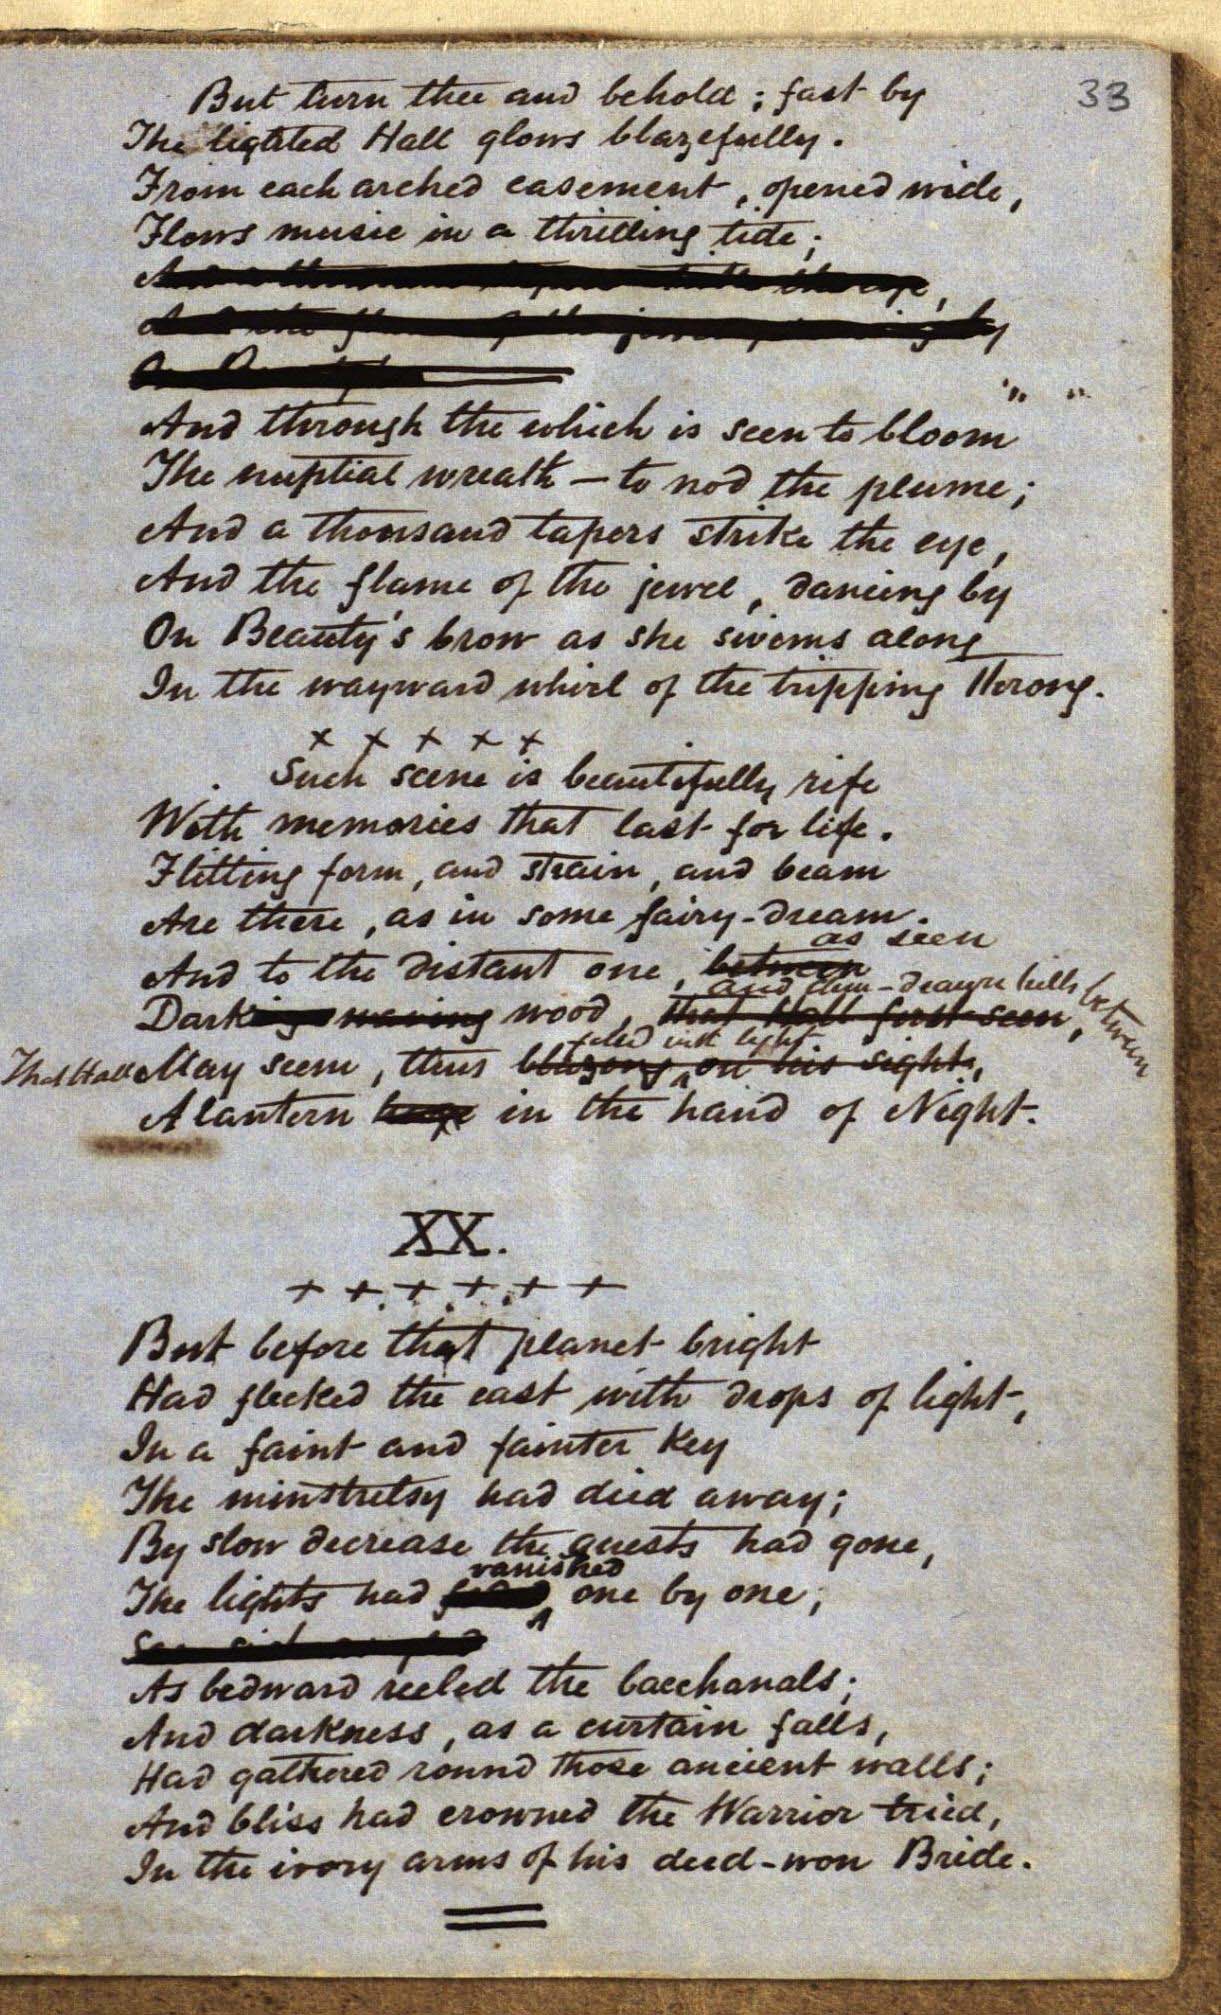 33
But turn thee and behold ; fast by
The lighted Hall glows blazefully.
From each arched casement, opened wide,
Flows music in a thrilling tide;
And through the which is seen to bloom
The nuptial wreath — to nod the plume;
And a thousand tapers strike the eye,
And the flame of the jewel, dancing by
On Beauty's brow as she swims along
In the wayward whirl of the tripping throng.
x x x x x
Such scene is beautifully rife
With memories that last for life.
Flitting form, and strain, and beam
Are there, as in some fairy-dream.
as seen
And to the distant one, between
and dim-drawn hills between
Darking waving wood, that Hall first seen,
filled with light
That Hall May seem, thus blazons on his sight,
A lantern huge in the hand of Night.
XX.
+ + + + + +
But before that planet bright
Had flecked the east with drops of light,
In a faint and fainter key
The minstrelsy had died away;
By slow decrease the guests had gone,
vanished
The lights had one by one;
As bedward reeled the bacchanals;
And darkness, as a curtain falls,
Had gathered round those ancient walls;
And bliss had crowned the Warrior tried,
In the ivory arms of his deed-won Bride.